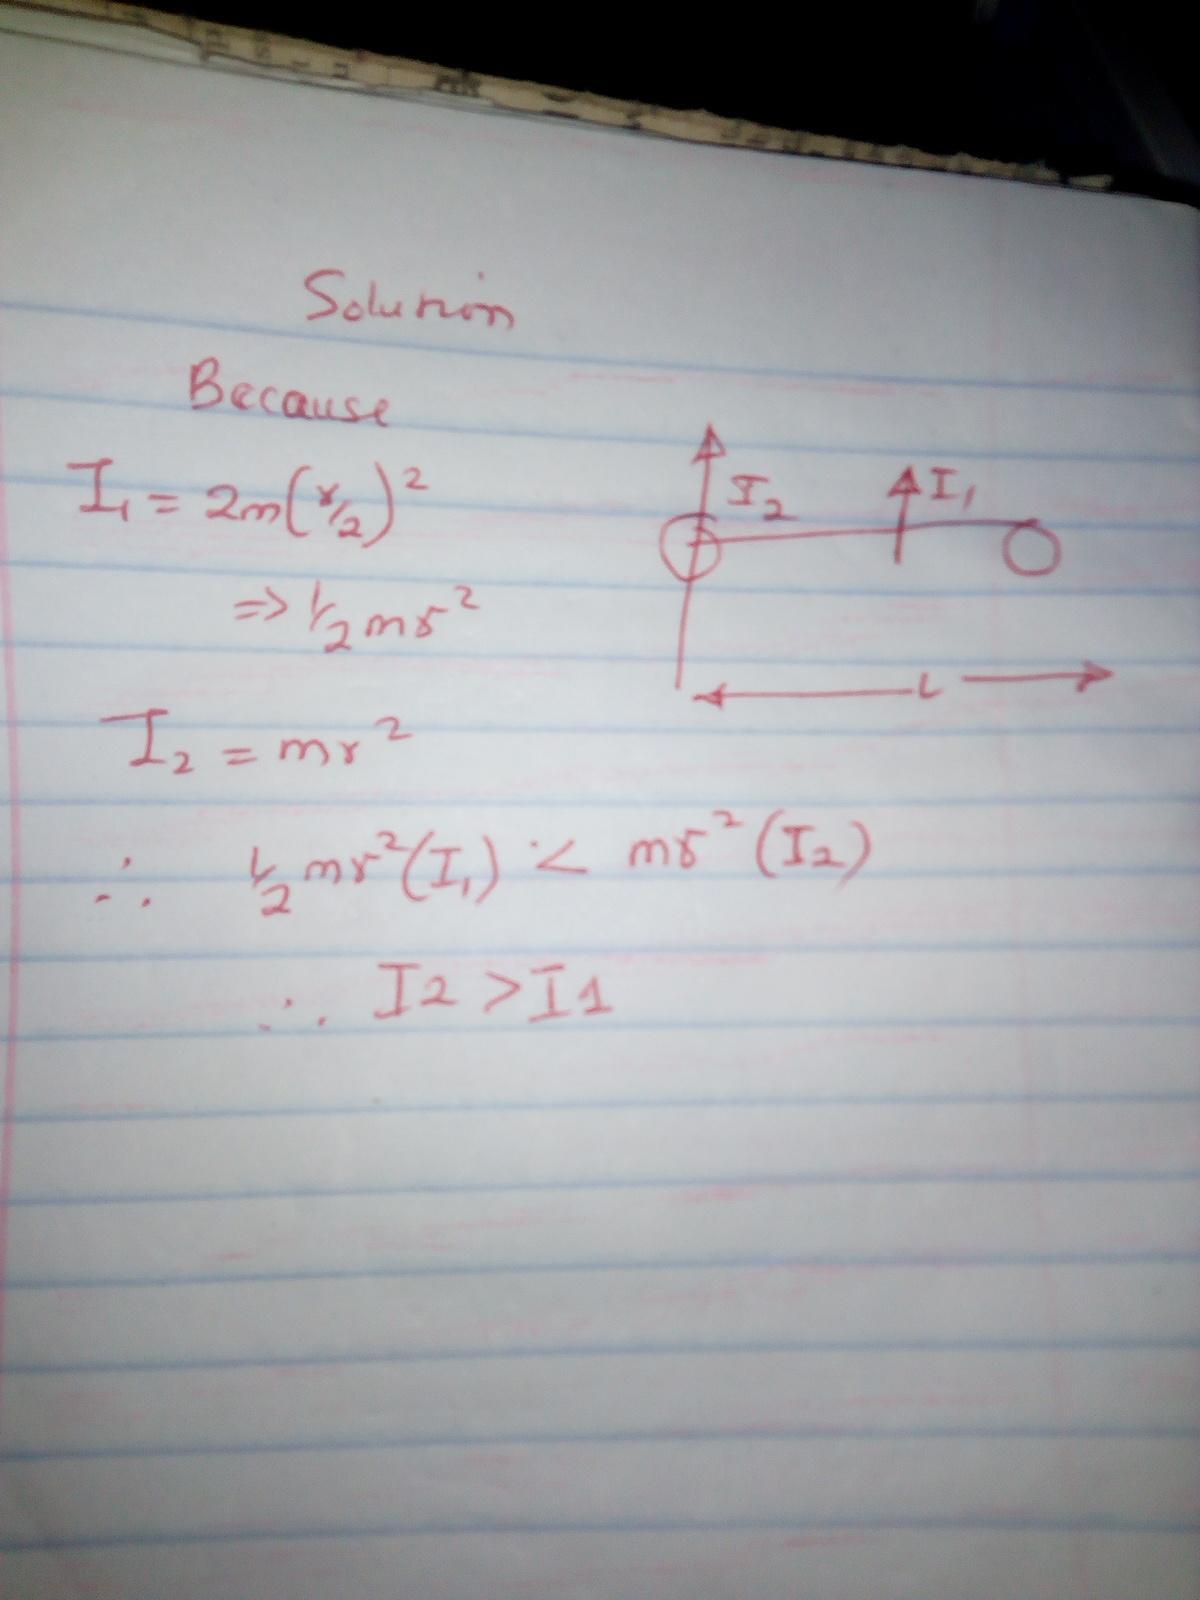 Solution
Because
I₁ = 2m(r/2)²
=> 1/2 mr²
I₂ = mr²
∴ 1/2 mr² (I₁) < mr² (I₂)
∴ I2 > I1
I₂
I₁
L